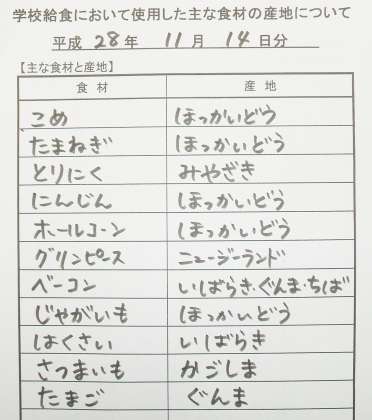 学校給食において使用した主な食材の産地について
平成 28 年 11 月 14 日分
【主な食材と産地】
食材 産地
こめ ほっかいどう
たまねぎ ほっかいどう
とりにく みやざき
にんじん ほっかいどう
ホールコーン ほっかいどう
グリンピース ニュージーランド
ベーコン いばらき・ぐんま・ちば
じゃがいも ほっかいどう
はくさい いばらき
さつまいも かごしま
たまご ぐんま